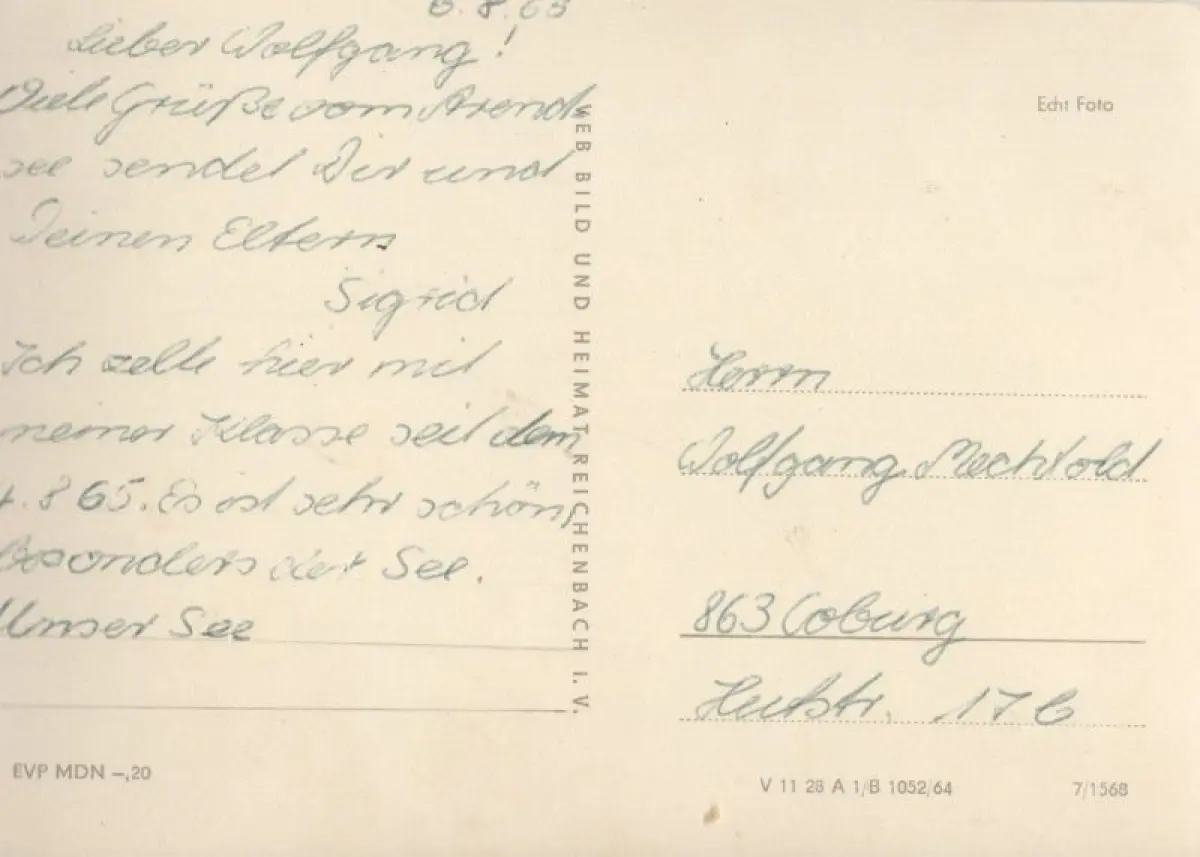 6.8.65
Lieber Wolfgang!
Viele Grüße vom Arend-
see sendet Dir und
Deinen Eltern
Sigrid
Ich zelte hier mit
meiner Klasse seit dem
4.8.65. Es ist sehr schön,
besonders der See.
Unser See
EVP MDN –,20
VEB BILD UND HEIMAT REICHENBACH I. V.
Echt Foto
Herrn
Wolfgang
863 Coburg
Hutstr. 17 b
V 11 28 A 1/B 1052/64
7/1568